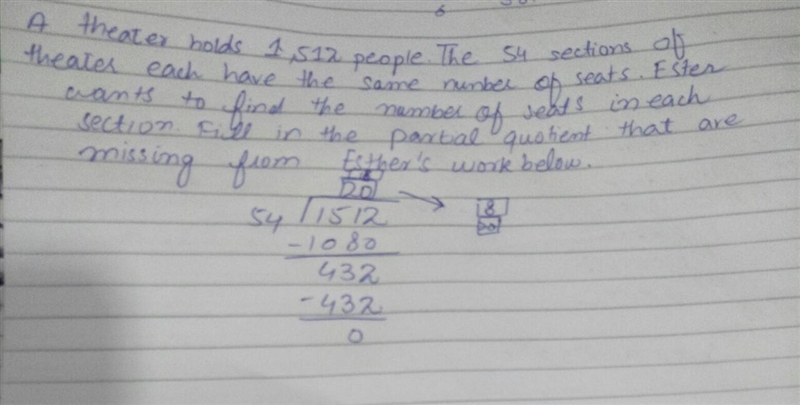 6
A theater holds 1,512 people. The 54 sections of
theater each have the same number of seats. Ester
wants to find the number of seats in each
section. Fill in the partial quotient that are
missing from Esther's work below.
8
20 → 8
54 1512 20
-1080
432
-432
0